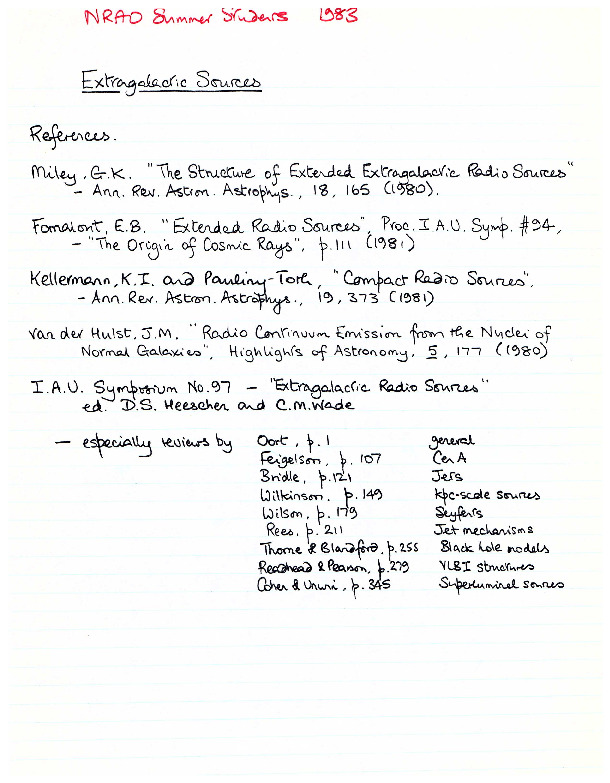 NRAO Summer Students 1983
Extragalactic Sources
References.
Miley, G.K. "The Structure of Extended Extragalactic Radio Sources"
- Ann. Rev. Astron. Astrophys., 18, 165 (1980).
Fomalont, E.B. "Extended Radio Sources", Proc. I.A.U. Symp. #94,
- "The Origin of Cosmic Rays", p.111 (1981)
Kellermann, K.I. and Pauliny-Toth, "Compact Radio Sources",
- Ann. Rev. Astron. Astrophys., 19, 373 (1981)
van der Hulst, J.M. "Radio Continuum Emission from the Nuclei of
Normal Galaxies", Highlights of Astronomy, 5, 177 (1980)
I.A.U. Symposium No. 97 - "Extragalactic Radio Sources"
ed. D.S. Heeschen and C.M. Wade
- especially reviews by Oort, p. 1 general
Feigelson, p. 107 Cen A
Bridle, p. 121 Jets
Wilkinson, p. 149 kpc-scale sources
Wilson, p. 179 Seyferts
Rees, p. 211 Jet mechanisms
Thorne & Blandford, p. 255 Black hole models
Readhead & Pearson, p. 279 VLBI structures
Cohen & Unwin, p. 345 Superluminal sources